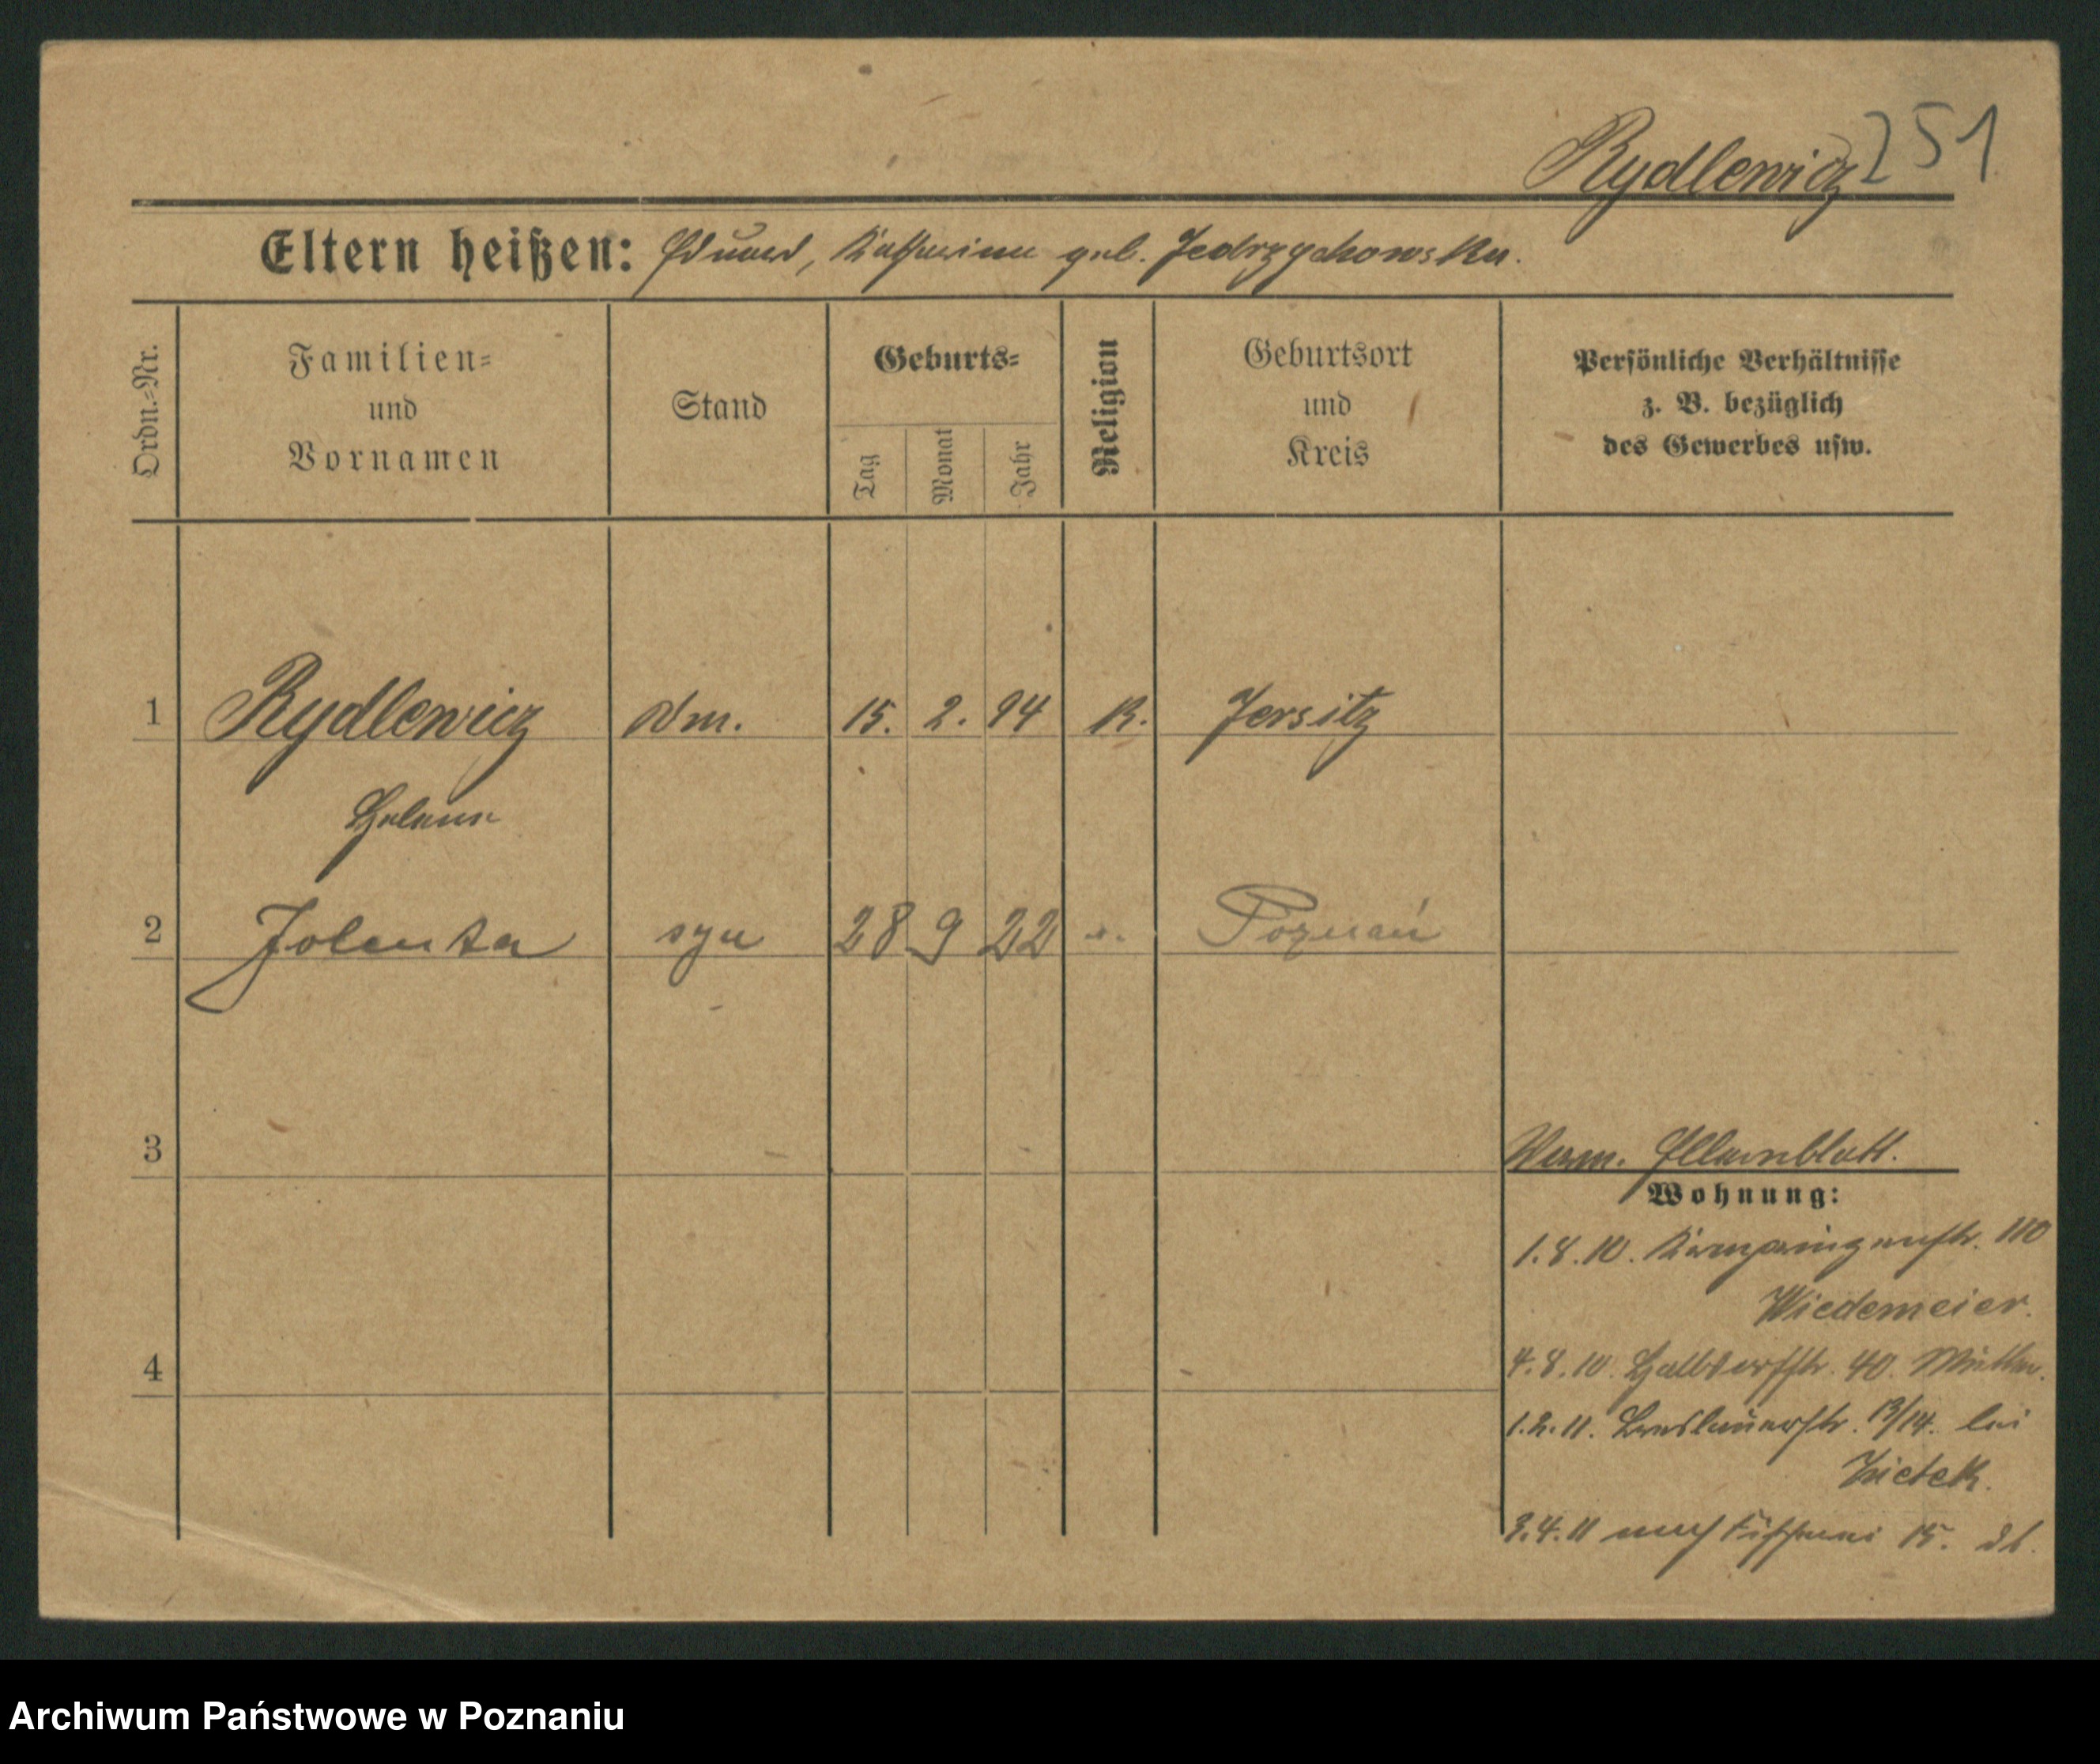 Rydlewicz 251
Eltern heißen: Eduard, Katharina geb. Jedrzychowska.
Ordn.=Nr.
Familien=
und
Vornamen
Stand
Geburts=
Tag
Monat
Jahr
Religion
Geburtsort
und
Kreis
Persönliche Verhältnisse
z. B. bezüglich
des Gewerbes usw.
1 Rydlewicz Dm. 15. 2. 94 K. Jersitz
Helena
2 Jolenta 28 9 22 Poznań
3
Verm. Elternblatt.
Wohnung:
1.8.10. 110
Wiedemeier.
4
4.8.10. Halbdorfstr. 40. Mutter.
1.2.11. Breslauerstr. 13/14. bei
3.4.11 nach 15.
Archiwum Państwowe w Poznaniu